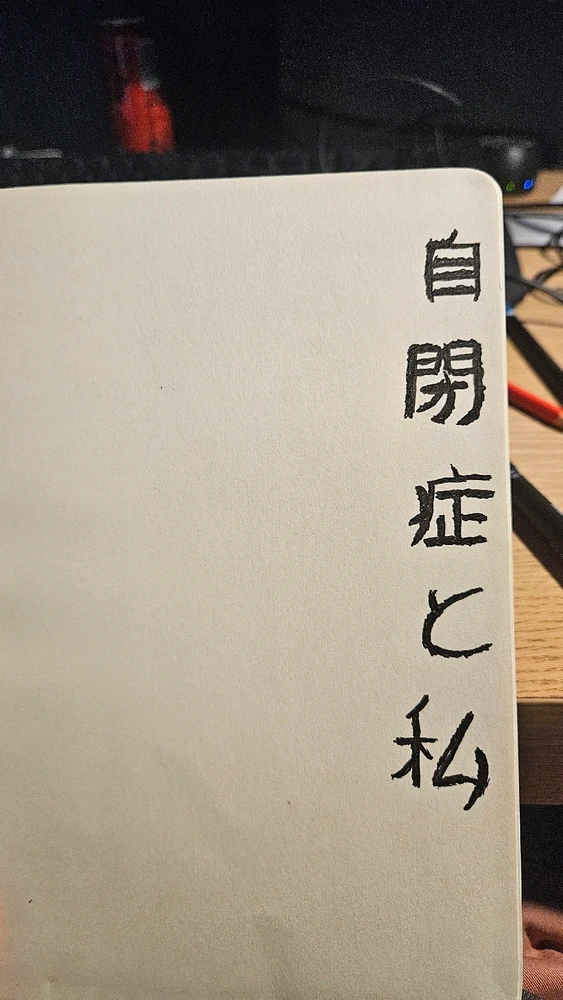 自閉症と私